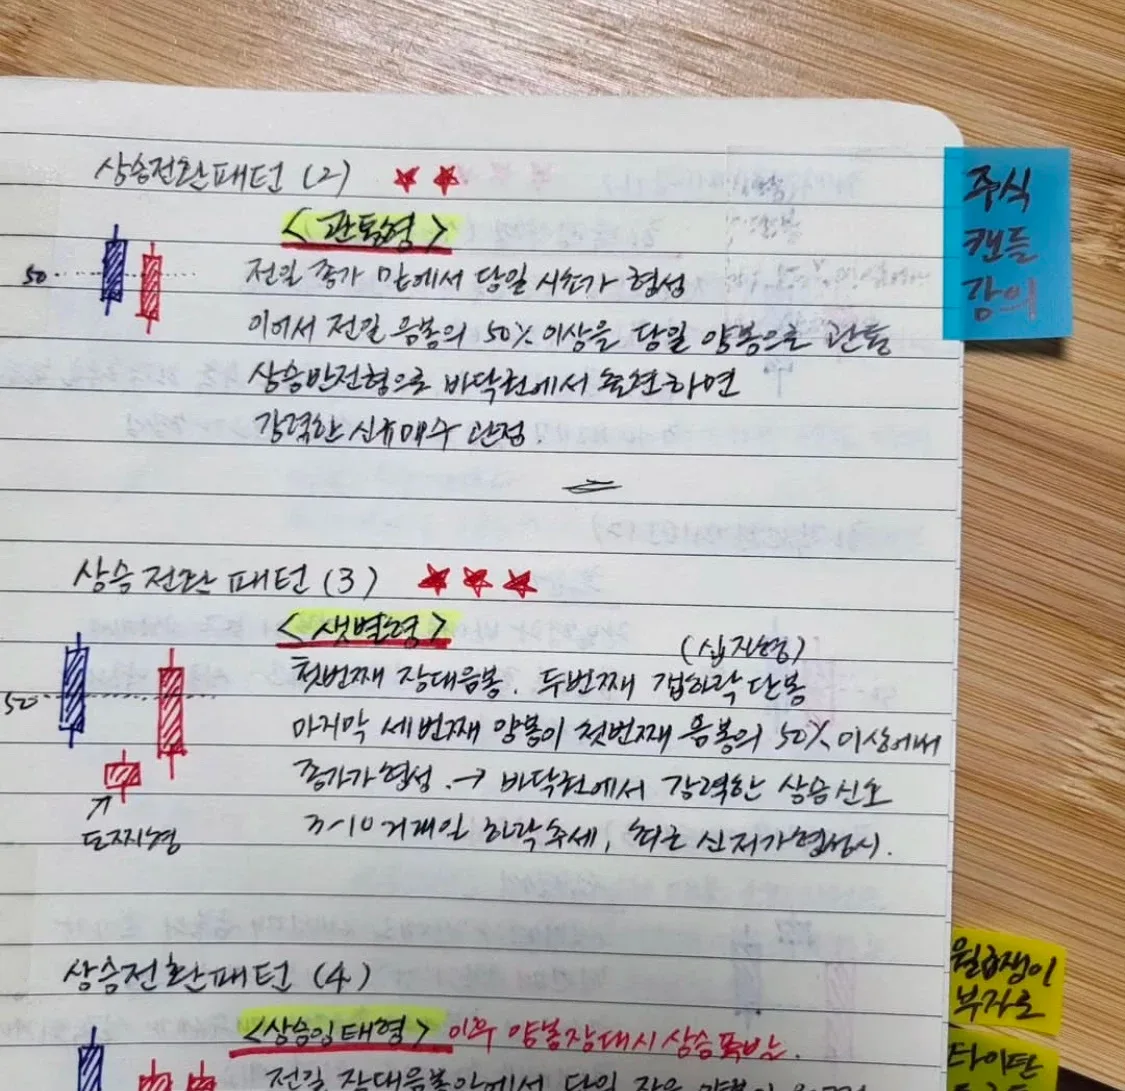 상승전환패턴 (2)
<관통형>
50
전일 종가 밑에서 당일 시초가 형성
이어서 전일 음봉의 50% 이상을 당일 양봉으로 관통
상승반전형으로 바닥권에서 출현하면
강력한 신규매수 관점.
상승전환패턴 (3)
<샛별형>
(십자형)
첫번째 장대음봉. 두번째 갭하락 단봉
50
마지막 세번째 양봉이 첫번째 음봉의 50% 이상에서
종가가 형성. → 바닥권에서 강력한 상승신호
7~10거래일 하락추세, 최근 신저가형성시.
도찌형
상승전환패턴 (4)
<상승잉태형> 이후 양봉장대시 상승폭발.
전일 장대음봉안에서 당일 작은 양봉이
주식
캔들
강의
월급쟁이
부자로
타이탄